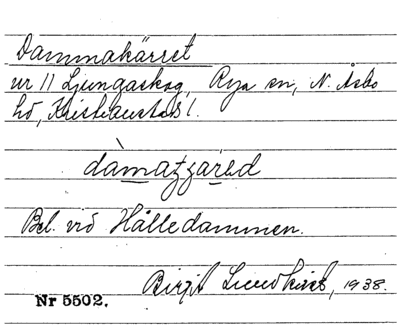 Dammakärret
ur 11 Ljungaskog, Rya sn, N. Åsbo
hd, Kristianstads l.
Bel. vid Hålledammen.
Birgit Lundkvist, 1938.
Nr 5502.